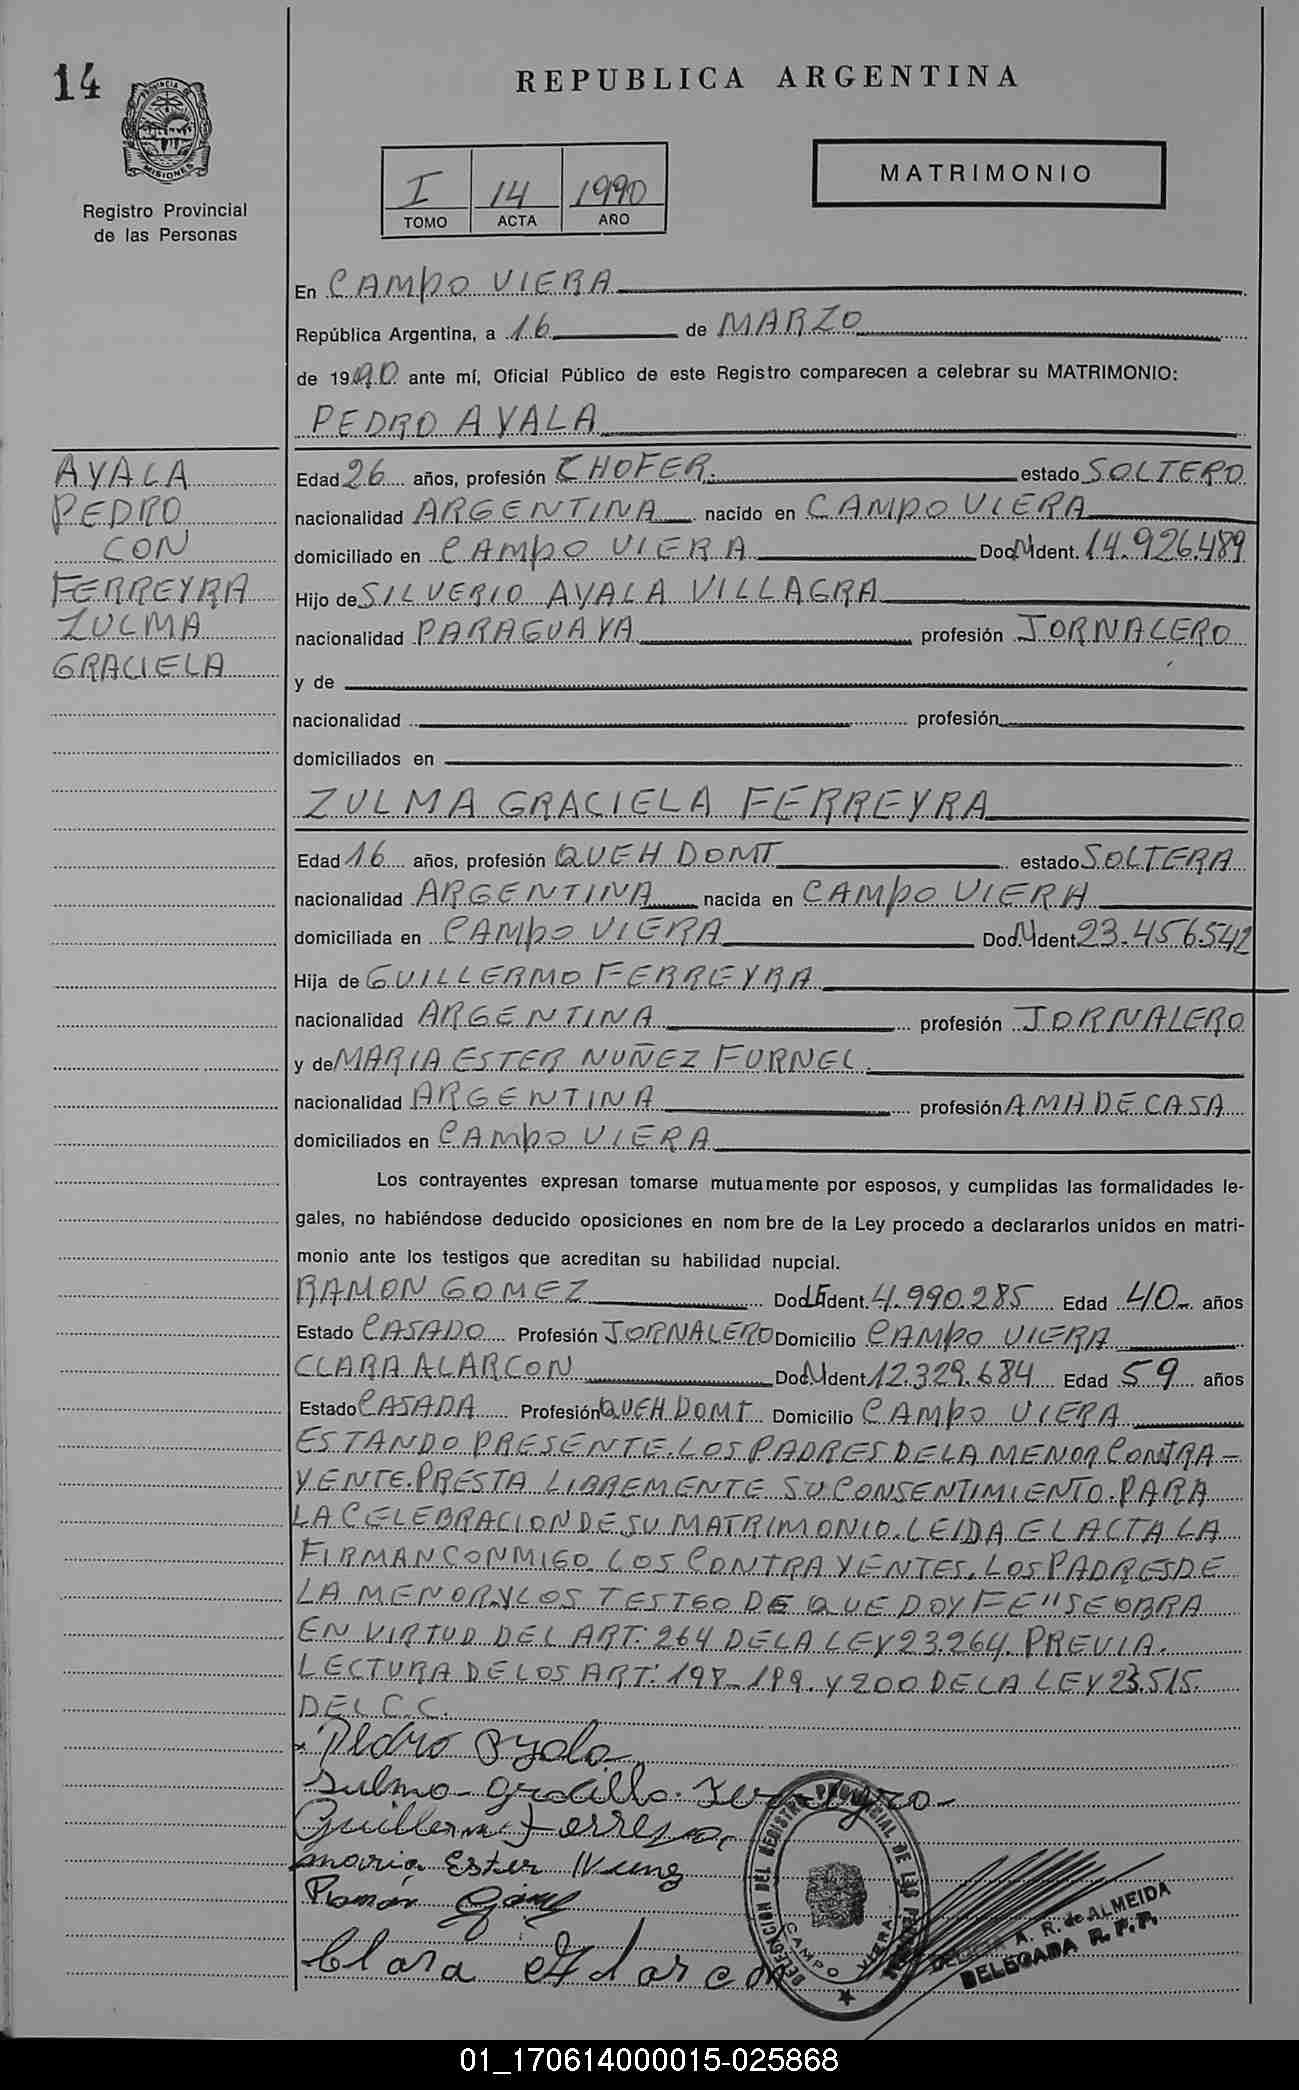 14
REPUBLICA ARGENTINA
PROVINCIA DE
MISIONES
Registro Provincial
de las Personas
I 14 1990
TOMO ACTA AÑO
MATRIMONIO
En CAMPO VIERA
República Argentina, a 16 de MARZO
de 1990 ante mí, Oficial Público de este Registro comparecen a celebrar su MATRIMONIO:
PEDRO AYALA
AYALA
PEDRO
CON
FERREYRA
ZULMA
GRACIELA
Edad 26 años, profesión CHOFER. estado SOLTERO
nacionalidad ARGENTINA nacido en CAMPO VIERA
domiciliado en CAMPO VIERA Doc. NI Ident. 14.926.489
Hijo de SILVERIO AYALA VILLAGRA
nacionalidad PARAGUAYA profesión JORNALERO
y de
nacionalidad profesión
domiciliados en
ZULMA GRACIELA FERREYRA
Edad 16 años, profesión QUEH DOMT estado SOLTERA
nacionalidad ARGENTINA nacida en CAMPO VIERA
domiciliada en CAMPO VIERA Doc. NI Ident 23.456.542
Hija de GUILLERMO FERREYRA
nacionalidad ARGENTINA profesión JORNALERO
y de MARIA ESTER NUÑEZ FURNEL.
nacionalidad ARGENTINA profesión AMA DE CASA
domiciliados en CAMPO VIERA
Los contrayentes expresan tomarse mutuamente por esposos, y cumplidas las formalidades le-
gales, no habiéndose deducido oposiciones en nom bre de la Ley procedo a declararlos unidos en matri-
monio ante los testigos que acreditan su habilidad nupcial.
RAMON GOMEZ Doc. LE Ident. 4.990.285 Edad 40 años
Estado CASADO Profesión JORNALERO Domicilio CAMPO VIERA
CLARA ALARCON Doc. NI Ident 12.329.684 Edad 59 años
Estado CASADA Profesión QUEH DOMT Domicilio CAMPO VIERA
ESTANDO PRESENTE. LOS PADRES DE LA MENOR CONTRA-
YENTE. PRESTA LIBREMENTE SU CONSENTIMIENTO. PARA
LA CELEBRACION DE SU MATRIMONIO. LEIDA EL ACTA LA
FIRMAN CONMIGO LOS CONTRAYENTES. LOS PADRES DE
LA MENOR. Y LOS TESTGO DE QUE DOY FE" SE OBRA
EN VIRTUD DEL ART: 264 DE LA LEY 23.264. PREVIA.
LECTURA DE LOS ART: 198- 199. Y 200 DE LA LEY 23.515.
DEL C.C.
Pedro Ayala
Sulma Gracilla Ferreyra
Guillermo Ferreyra
Maria Ester Nuñez
Ramón Gómez
Clara Alarcon
DELEGACION DEL REGISTRO PROVINCIAL DE LAS PERSONAS
CAMPO VIERA
A. R. de ALMEIDA
DELEGADA R. P. P.
01_170614000015-025868